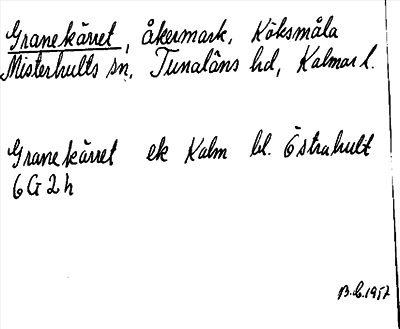 Granekärret, åkermark, Köksmåla
Misterhults sn, Tunaläns hd, Kalmar l.
Granekärret ek Kalm bl. Östrahult
6G2h
B.L. 1957